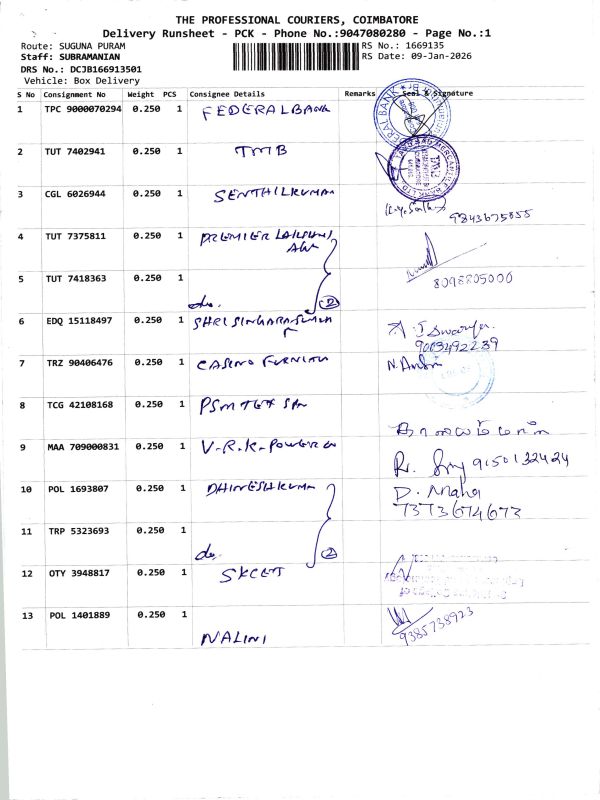 THE PROFESSIONAL COURIERS, COIMBATORE
Delivery Runsheet - PCK - Phone No.:9047080280 - Page No.:1
Route: SUGUNA PURAM
RS No.: 1669135
Staff: SUBRAMANIAN
RS Date: 09-Jan-2026
DRS No.: DCJB166913501
Vehicle: Box Delivery
S No Consignment No Weight PCS Consignee Details Remarks Seal & Signature
1 TPC 9000070294 0.250 1 FEDERAL BANK
2 TUT 7402941 0.250 1 TMB
3 CGL 6026944 0.250 1 SENTHILKUMAR
9843675855
4 TUT 7375811 0.250 1 PREMIER LAKSHMI
5 TUT 7418363 0.250 1 do. 2
8098805000
6 EDQ 15118497 0.250 1 SHRI
9003492239
7 TRZ 90406476 0.250 1 CASINO FURNITU
8 TCG 42108168 0.250 1 PSM TEX
9 MAA 709000831 0.250 1 V.R.K. POWER
R. 9150132424
10 POL 1693807 0.250 1 DHINESHKUMA
D. Maha
7373674673
11 TRP 5323693 0.250 1 do. 2
12 OTY 3948817 0.250 1 SKCET
13 POL 1401889 0.250 1 NALINI
9385738923